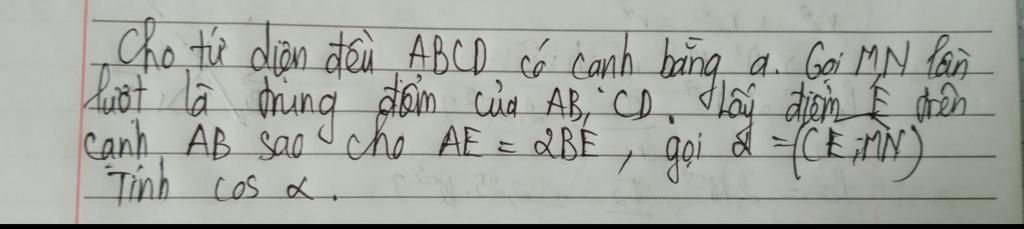 Cho tứ diện đều ABCD có cạnh bằng a. Gọi MN lần
lượt là trung điểm của AB, CD. Lấy điểm E trên
cạnh AB sao cho AE = 2BE, gọi α = (CE; MN)
Tính cos α.